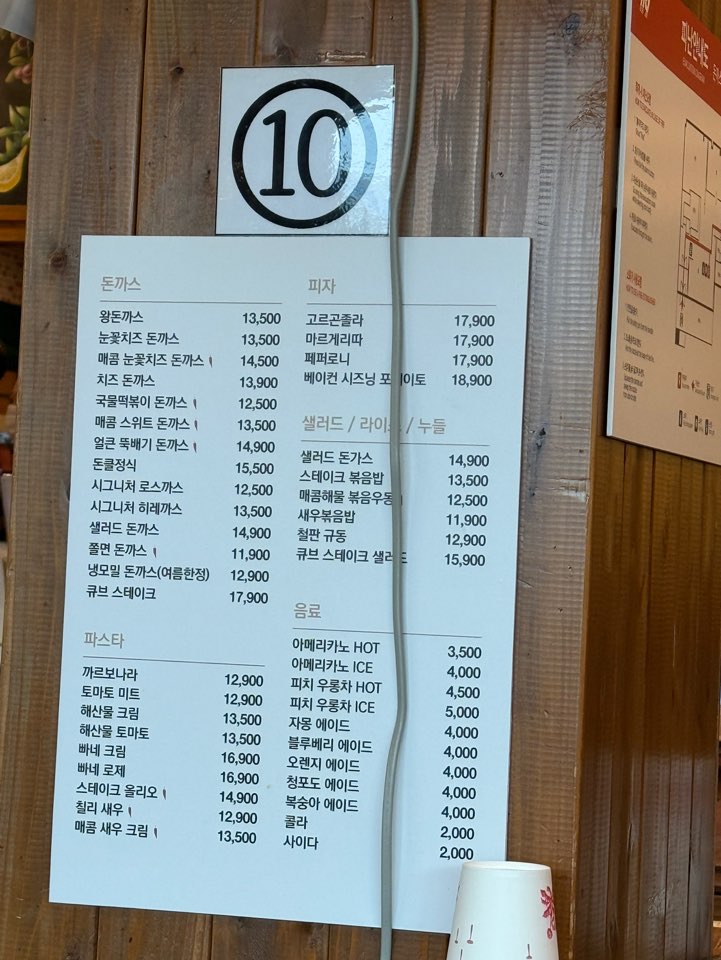 10
돈까스
왕돈까스 13,500
눈꽃치즈 돈까스 13,500
매콤 눈꽃치즈 돈까스 14,500
치즈 돈까스 13,900
국물떡볶이 돈까스 12,500
매콤 스위트 돈까스 13,500
얼큰 뚝배기 돈까스 14,900
돈클정식 15,500
시그니처 로스까스 12,500
시그니처 히레까스 13,500
샐러드 돈까스 14,900
쫄면 돈까스 11,900
냉모밀 돈까스(여름한정) 12,900
큐브 스테이크 17,900
파스타
까르보나라 12,900
토마토 미트 12,900
해산물 크림 13,500
해산물 토마토 13,500
빠네 크림 16,900
빠네 로제 16,900
스테이크 올리오 14,900
칠리 새우 12,900
매콤 새우 크림 13,500
피자
고르곤졸라 17,900
마르게리따 17,900
페퍼로니 17,900
베이컨 시즈닝 18,900
샐러드 / 라이스 / 누들
샐러드 돈가스 14,900
스테이크 볶음밥 13,500
매콤해물 볶음우동 12,500
새우볶음밥 11,900
철판 규동 12,900
큐브 스테이크 샐러드 15,900
음료
아메리카노 HOT 3,500
아메리카노 ICE 4,000
피치 우롱차 HOT 4,500
피치 우롱차 ICE 5,000
자몽 에이드 4,000
블루베리 에이드 4,000
오렌지 에이드 4,000
청포도 에이드 4,000
복숭아 에이드 4,000
콜라 2,000
사이다 2,000
피난안내도